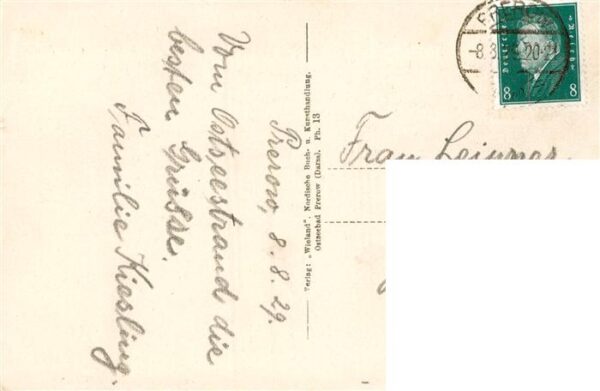 Prerow, 8. 8. 29.
Vom Ostseestrand die
besten Grüsse.
Familie Kiesling.
Verlag: „Wieland", Nordische Buch- u. Kunsthandlung.
Ostseebad Prerow (Darss). Ph. 13
Frau
PREROW
-8.8. 20-2
Deutsches Reich
8 8